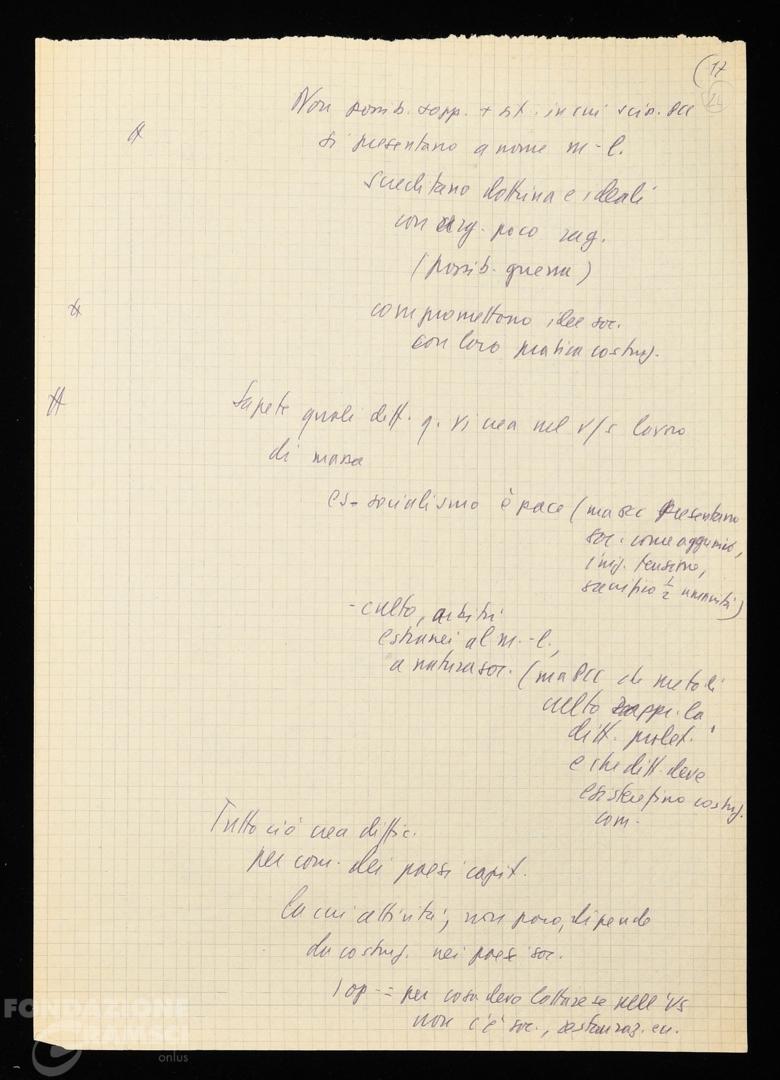 17
24
Non possib. rapp. + st. in cui scis. PCC
si presentano a nome m-l.
screditano dottrina e ideali
con arg. poco rag.
(possib. guerra)
compromettono idee soc.
con loro pratica costruz.
Sapete quali diff. q. vi crea nel v/s lavoro
di massa
es - socialismo è pace (ma PCC presentano
soc. come aggressivo,
tensione,
sacrificio ½ umanità)
- culto, arbitri
estranei al m.-l.,
a natura soc. (ma PCC che metodi
culto rappr. la
ditt. prolet.
e che ditt. deve
esistere fino costruz.
com.
Tutto ciò crea diffic.
per com. dei paesi capit.
la cui attività, non poco, dipende
da costruz. nei paesi soc.
1 op - = per cosa devo lottare se nell'US
non c'è soc., restauraz. ecc.
FONDAZIONE
GRAMSCI
onlus